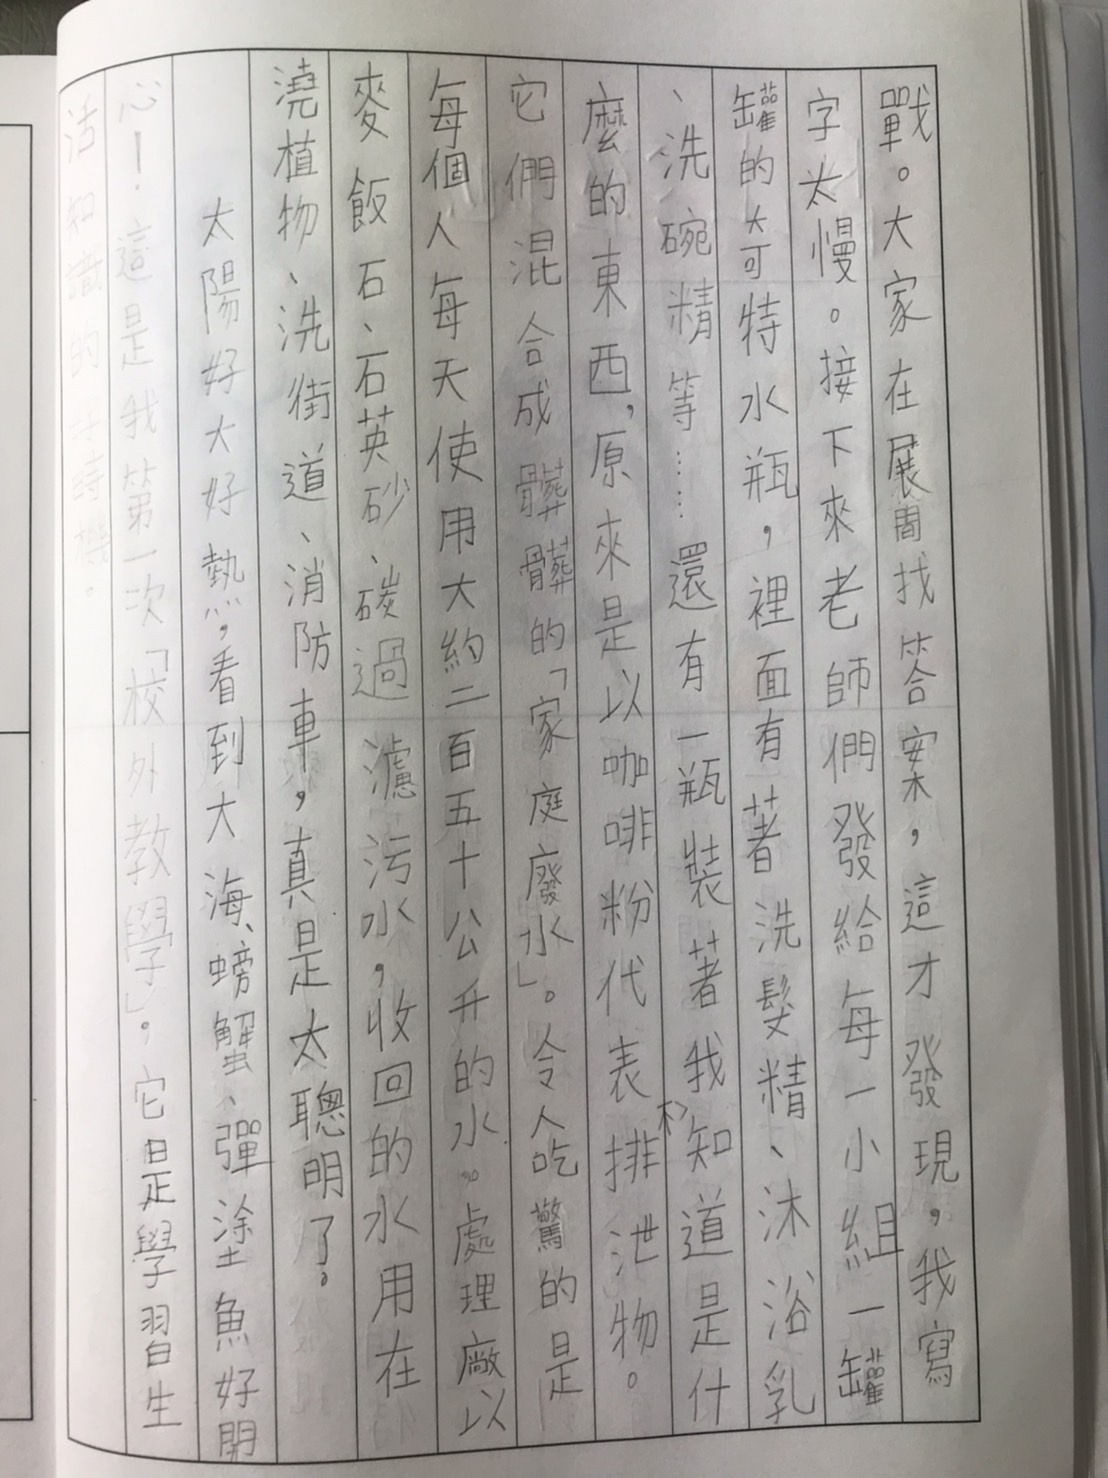 戰。大家在展間找答案，這才發現，我寫
字太慢。接下來老師們發給每一小組一罐
罐的大可特水瓶，裡面有著洗髮精、沐浴乳
、洗碗精等……還有一瓶裝著我不知道是什
麼的東西，原來是以咖啡粉代表排泄物。
它們混合成髒髒的「家庭廢水」。令人吃驚的是
每個人每天使用大約二百五十公升的水。處理廠以
麥飯石、石英砂、碳過濾污水，收回的水用在
澆植物、洗街道、消防車，真是太聰明了。
太陽好大好熱，看到大海、螃蟹、彈塗魚好開
心！這是我第一次「校外教學」，它是學習生
活知識的好時機。